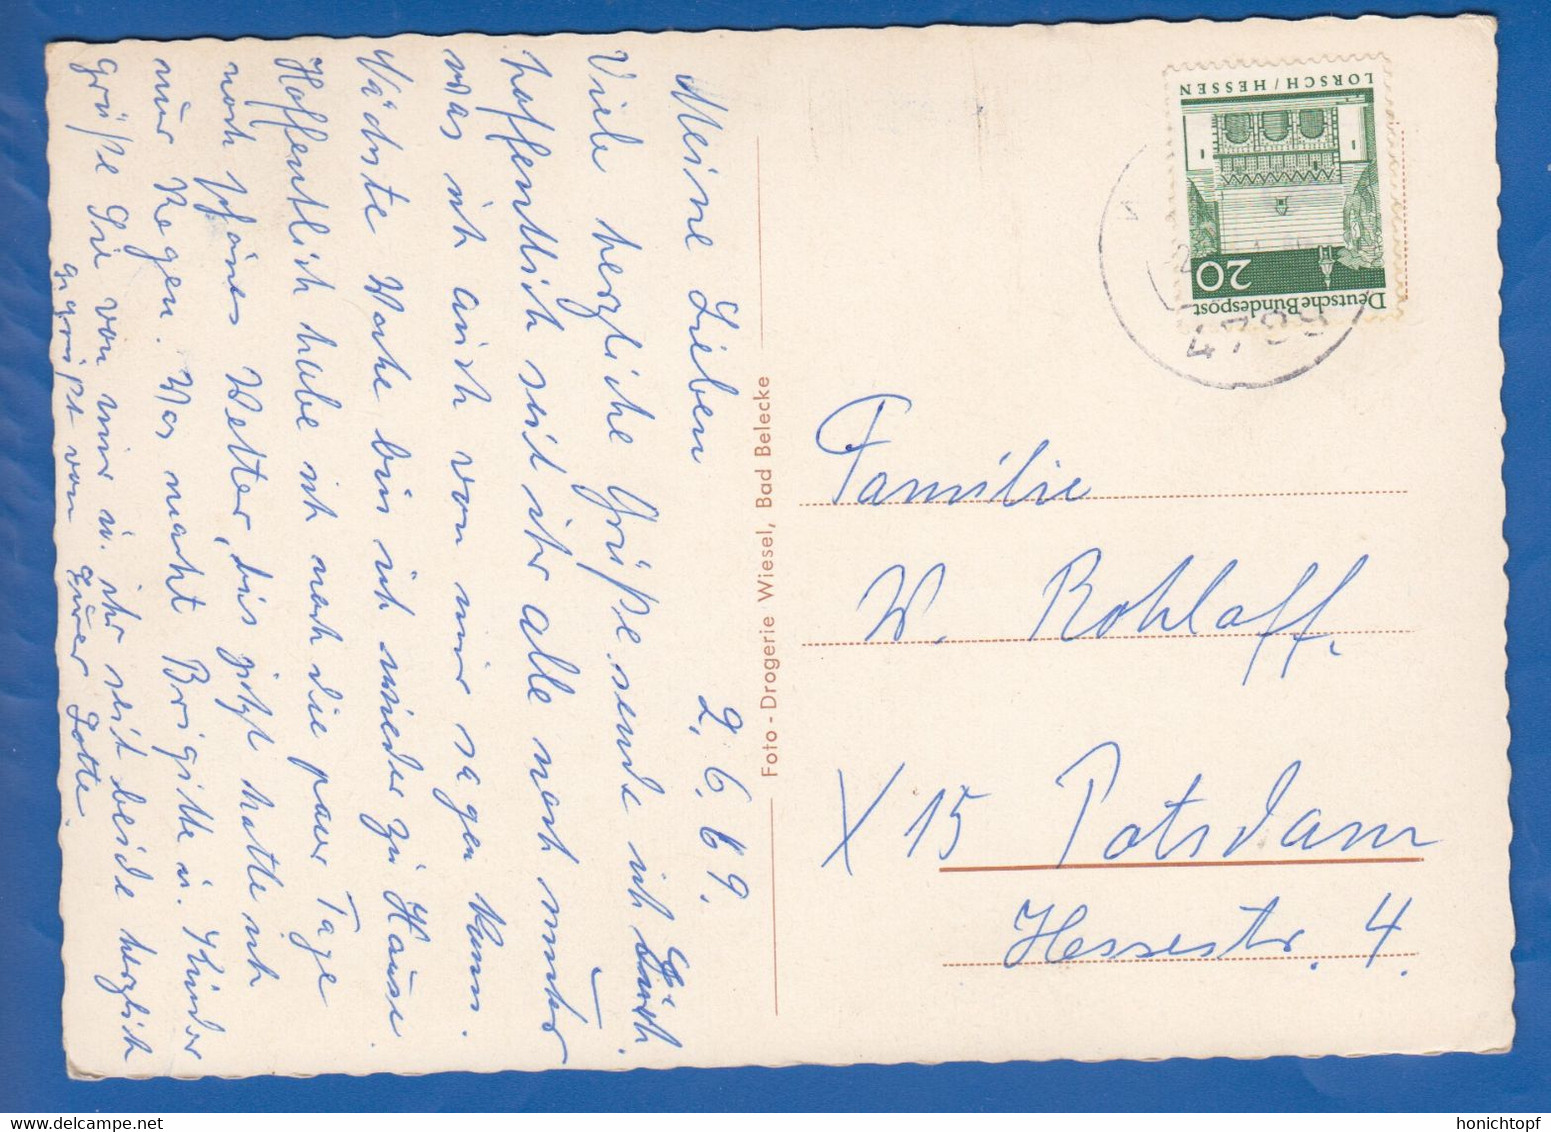 2.6.69.
Meine Lieben
Viele herzliche Grüße sende ich Euch.
hoffentlich seit ihr alle noch munter
was ich auch von mir sagen kann.
Nächste Woche bin ich wieder zu Hause
Hoffentlich habe ich noch die paar Tage
noch schönes Wetter, bis jetzt hatte ich
nur Regen. Was macht Brigitte u. Kinder
grüße Sie von mir u. ihr seit beide herzlich
gegrüßt von eurer Lotte.
Foto - Drogerie Wiesel, Bad Belecke
Deutsche Bundespost
20
LORSCH / HESSEN
Familie
W. Rohlaff.
X 15 Potsdam
Hessestr. 4.